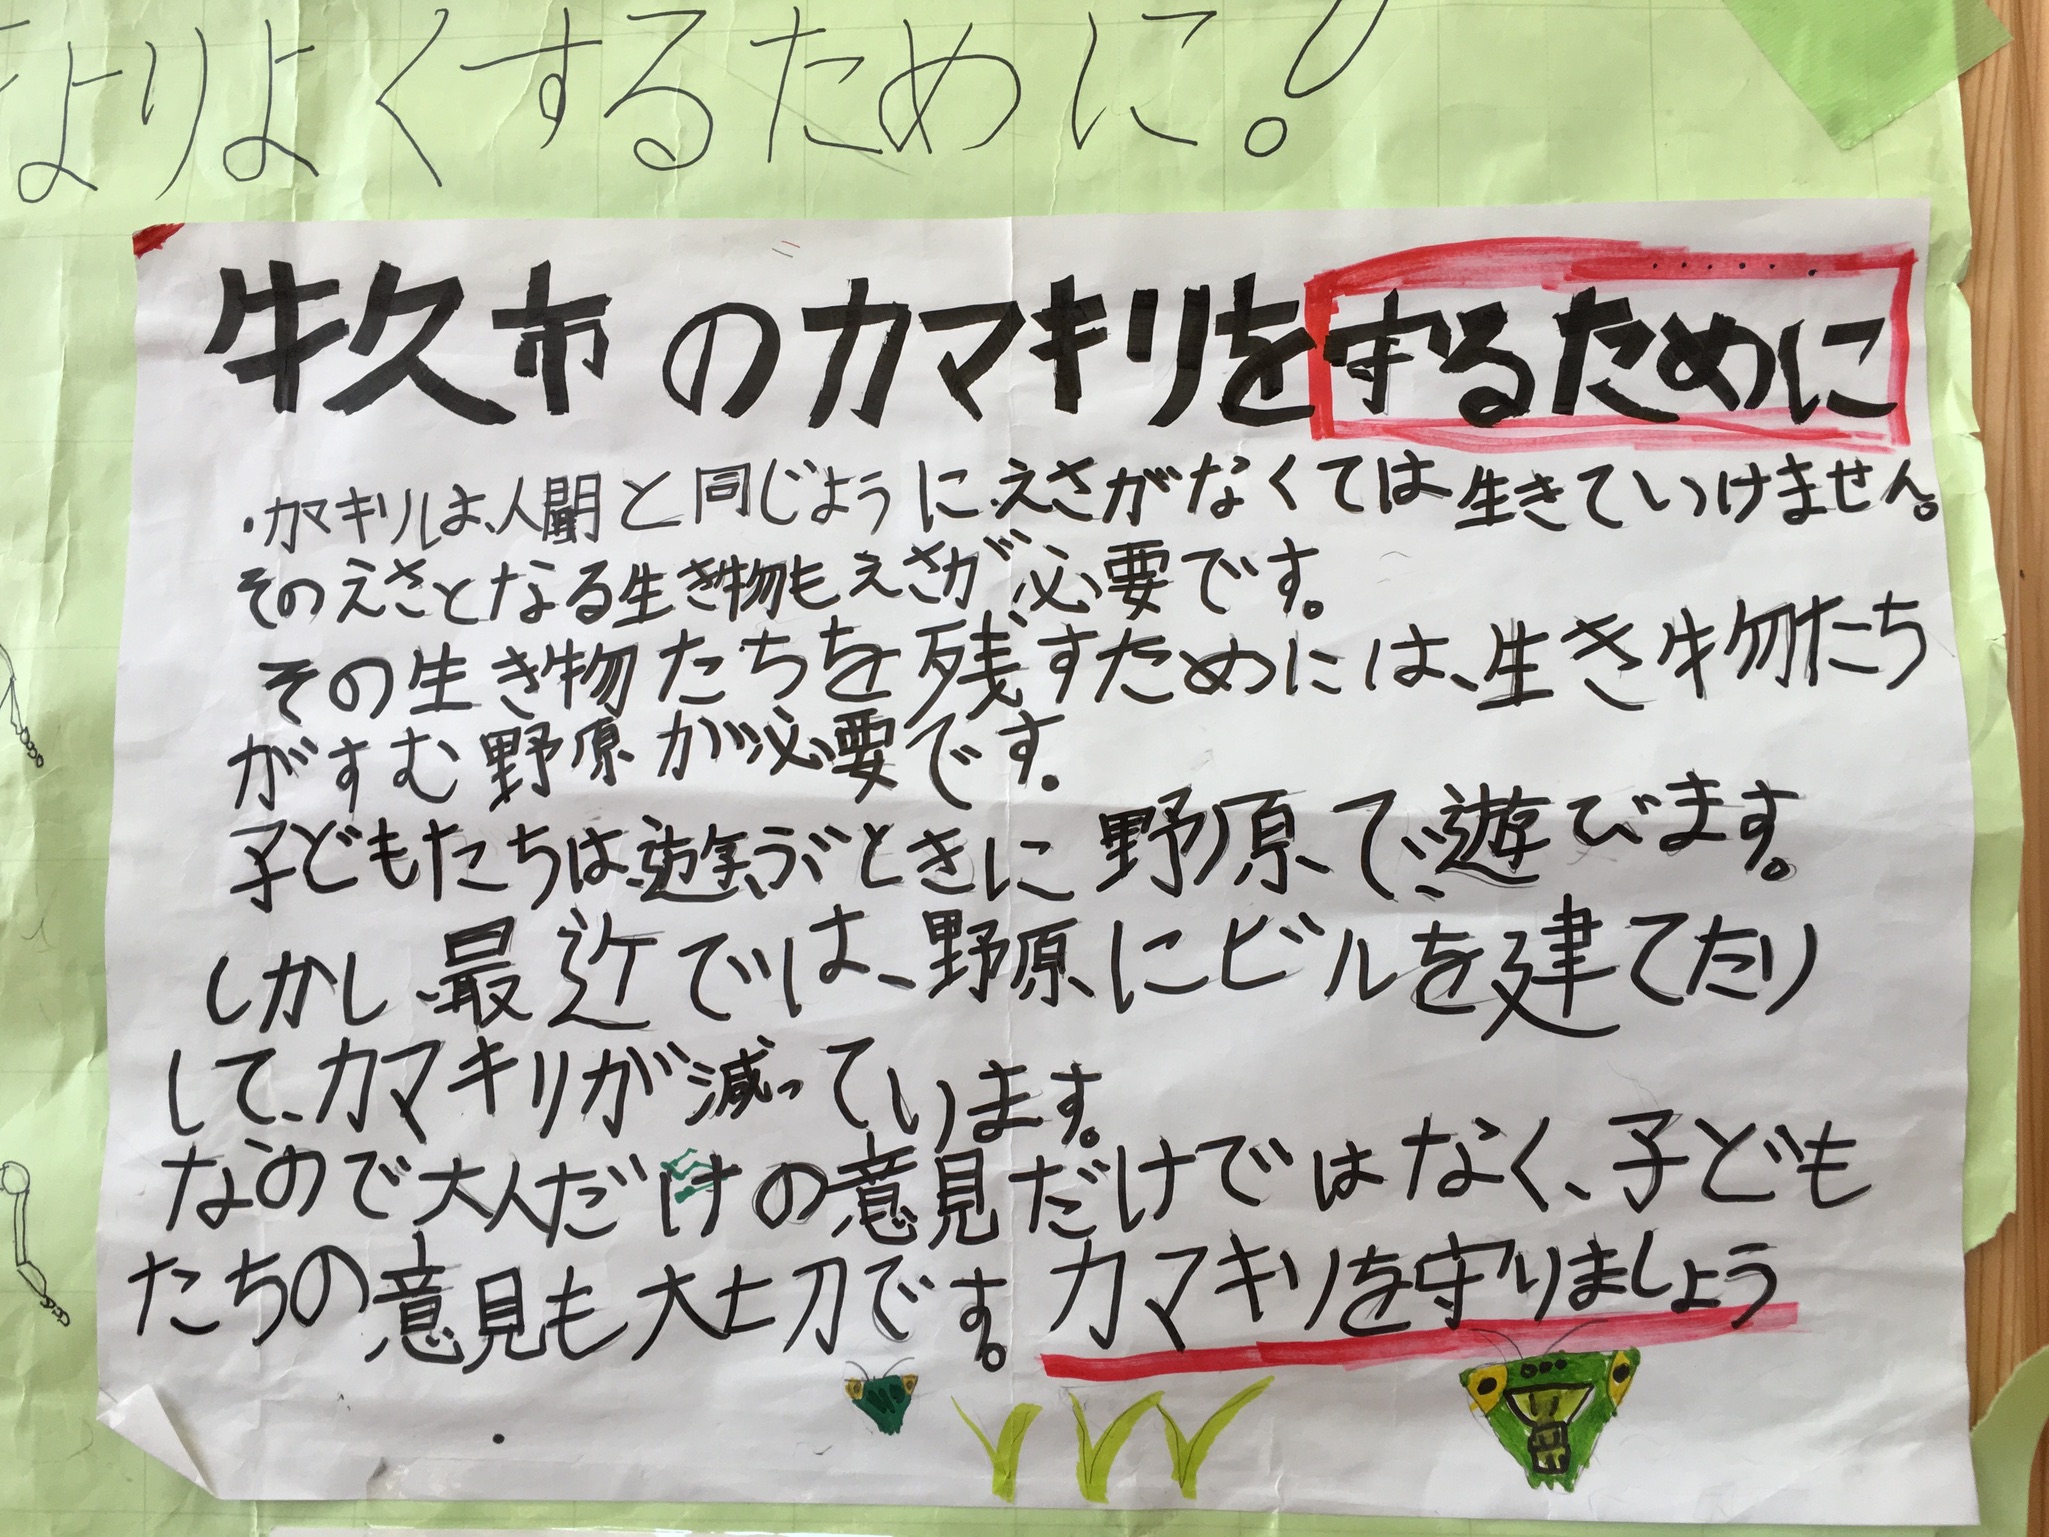 よりよくするために!
牛久市のカマキリを守るために
・カマキリは、人間と同じようにえさがなくては生きていけません。
そのえさとなる生き物もえさが必要です。
その生き物たちを残すためには、生き物たち
がすむ野原が必要です。
子どもたちは、遊ぶときに野原で、遊びます。
しかし、最近では、野原にビルを建てたり
して、カマキリが減っています。
なので大人だけの意見だけではなく、子ども
たちの意見も大切です。カマキリを守りましょう